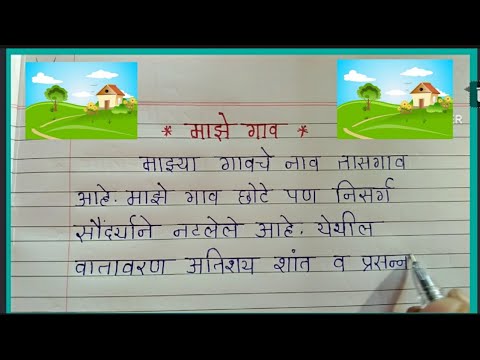 * माझे गाव *
माझ्या गावचे नाव तासगाव
आहे. माझे गाव छोटे पण निसर्ग
सौंदर्याने नटलेले आहे. येथील
वातावरण अतिशय शांत व प्रसन्न